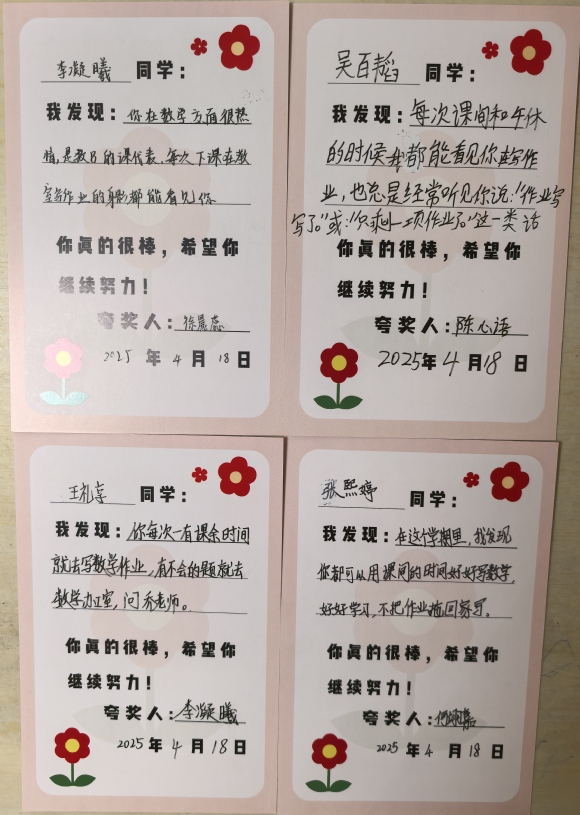 李凝曦 同学：
我发现：你在数学方面很热
情，是数B的课代表，每次下课在教
室写作业的身影都能看见你
你真的很棒，希望你
继续努力！
夸奖人：徐晨蕊
2025 年 4 月 18 日
吴百韬 同学：
我发现：每次课间和午休
的时候我都能看见你在写作
业，也总是经常听见你说：“作业写
写了。”或：“只剩一项作业了。”这一类话
你真的很棒，希望你
继续努力！
夸奖人：陈心语
2025年 4 月 18 日
王礼享 同学：
我发现：你每次一有课余时间
就去写数学作业，有不会的题就去
数学办公室，问乔老师。
你真的很棒，希望你
继续努力！
夸奖人：李凝曦
2025 年 4 月 18 日
张熙婷 同学：
我发现：在这个学期里，我发现
你都可以用课间的时间好好写数学，
好好学习，不把作业拖回家写。
你真的很棒，希望你
继续努力！
夸奖人：
2025 年 4 月 18 日